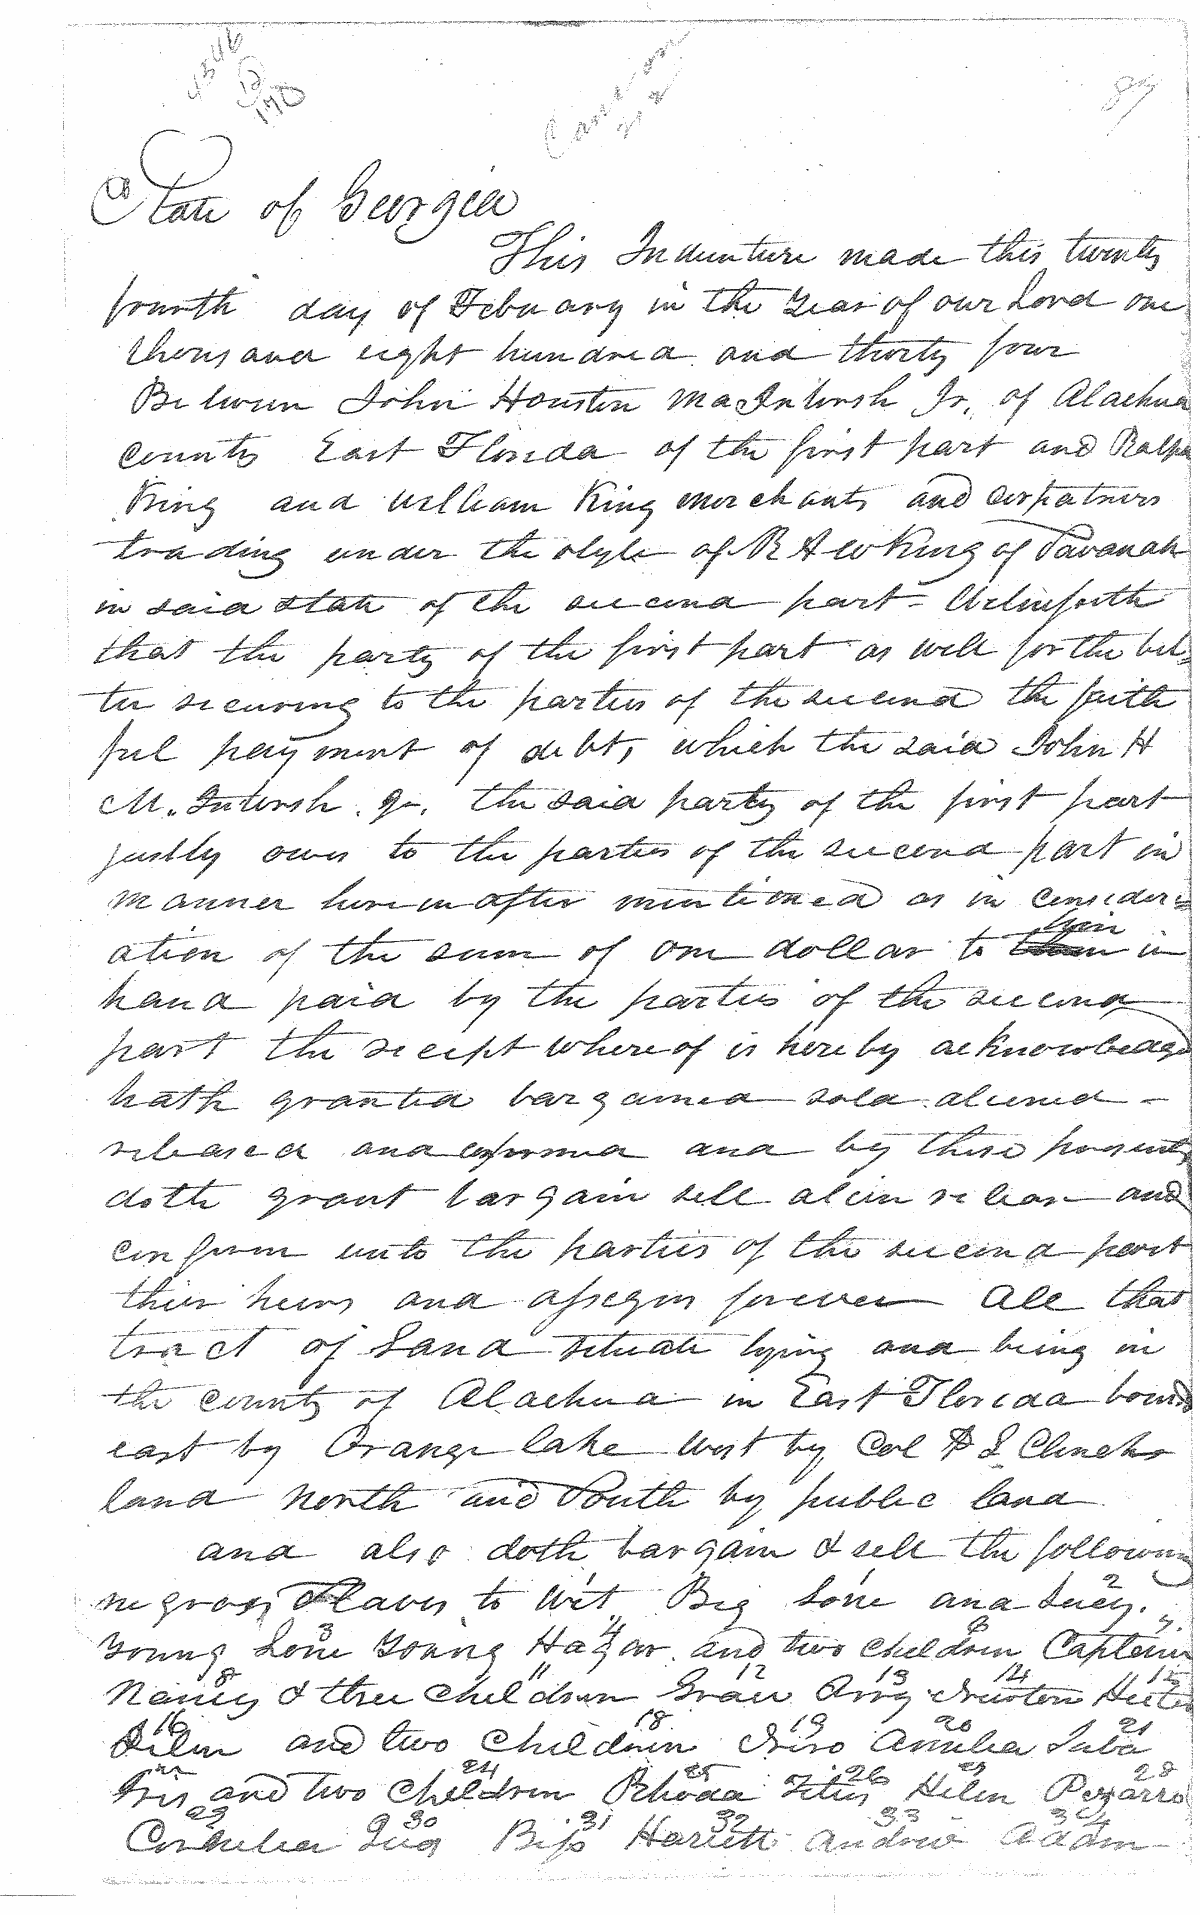 89
State of Georgia
This Indenture made this twenty
fourth day of Febuary in the Year of our Lord one
thousand eight hundred and thirty four
Between John Houston MacIntosh Jr. of Alachua
county East Florida of the first part and Ralph
King and William King merchants and copatners
trading under the style of R & W King of Savanah
in said state of the second part - Witnesseth
that the party of the first part as well for the bet-
ter securing to the parties of the second the faith
ful payment of debt, which the said John H
M. Intosh Jr. the said party of the first part
justly owes to the parties of the second part in
manner hereinafter mentioned as in consider=
ation of the sum of one dollar to him in
hand paid by the parties of the second
part the receipt whereof is hereby acknowledged
hath granted bargained sold aliened -
released and confirmed and by these presents
doth grant bargain sell alien release and
confirm unto the parties of the second part
their heirs and assigns forever All that
tract of Land situate lying and being in
the county of Alachua in East Florida bound
east by Orange lake West by Col D L Clinchs
land North and South by public land
and also doth bargain & sell the following
negroes Slaves to Wit Big 1 2
3 4 6 7
Young Young Hagar and two children Captain
8 11 12 13 14 15
Nancy & three children Grace Newton
16 18 19 20 21
and two children Amelia Juba
24 25 26 27 28
Iris and two children Rhoda Titus Helen Pezarro
29 30 31 32 33 34
Cornelia Bess Harriett Andrew Adam